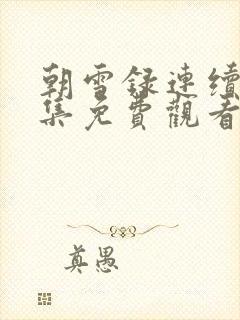 朝雪録連續
集免費觀看
真愚